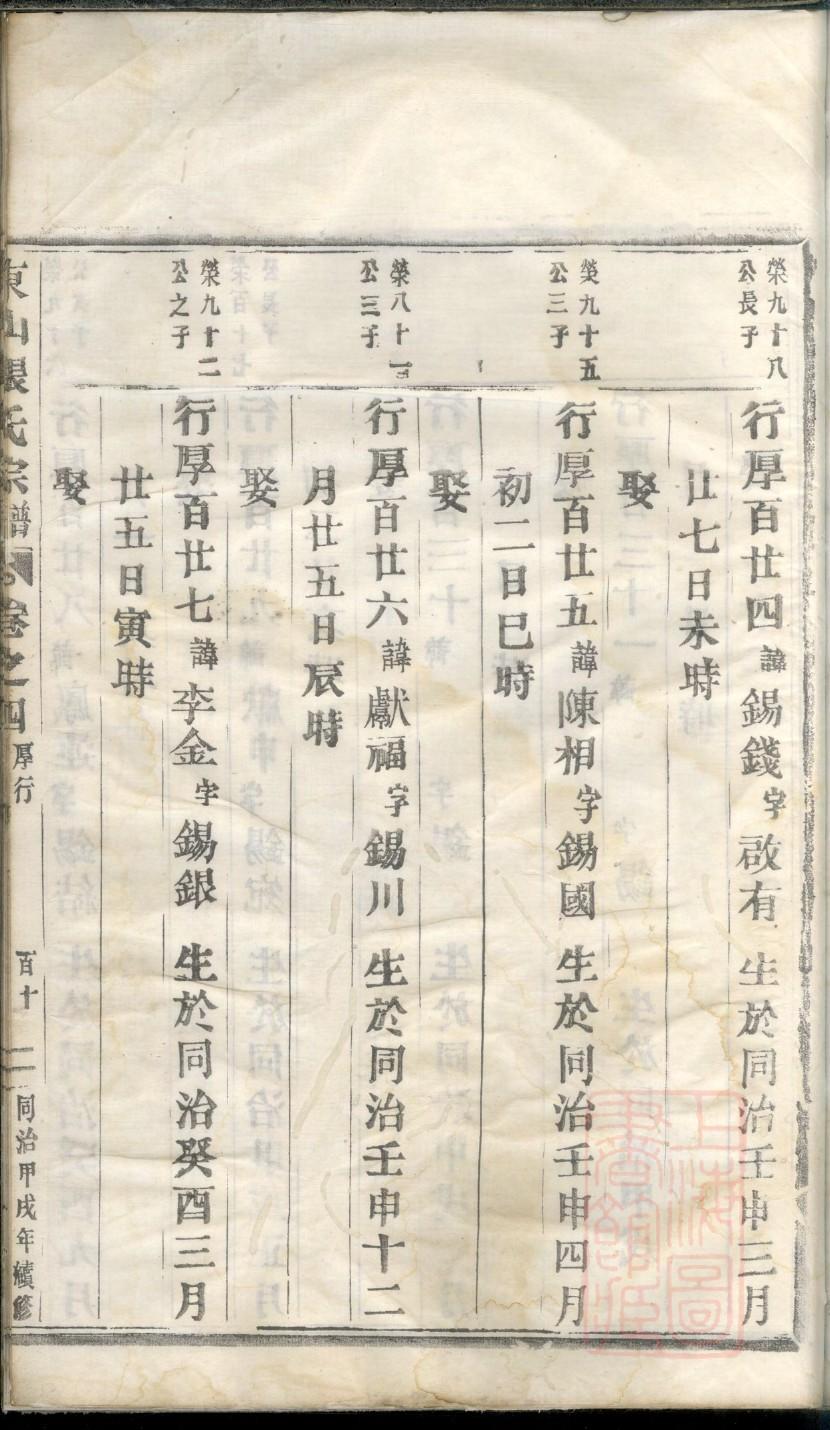 榮九十八
公長子
行厚百廿四諱錫錢字啟有 生於同治壬申三月
廿七日未時
娶
榮九十五
公三子
行厚百廿五諱陳相字錫國 生於同治壬申四月
初二日巳時
娶
榮八十一
公三子
行厚百廿六諱獻福字錫川 生於同治壬申十二
月廿五日辰時
娶
榮九十二
公之子
行厚百廿七諱李金字錫銀 生於同治癸酉三月
廿五日寅時
娶
東山張氏宗譜 卷之四 厚行 百十二 同治甲戌年續修
上海圖書館藏